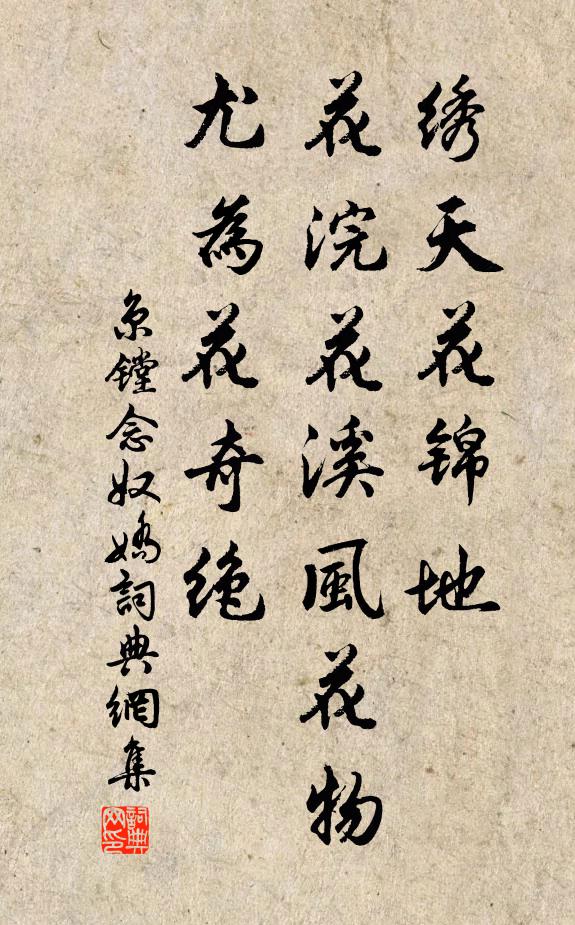 绣天花锦地
花浣花溪風花物
尤為花奇绝
京镗念奴嬌詞典網集
詞典网印